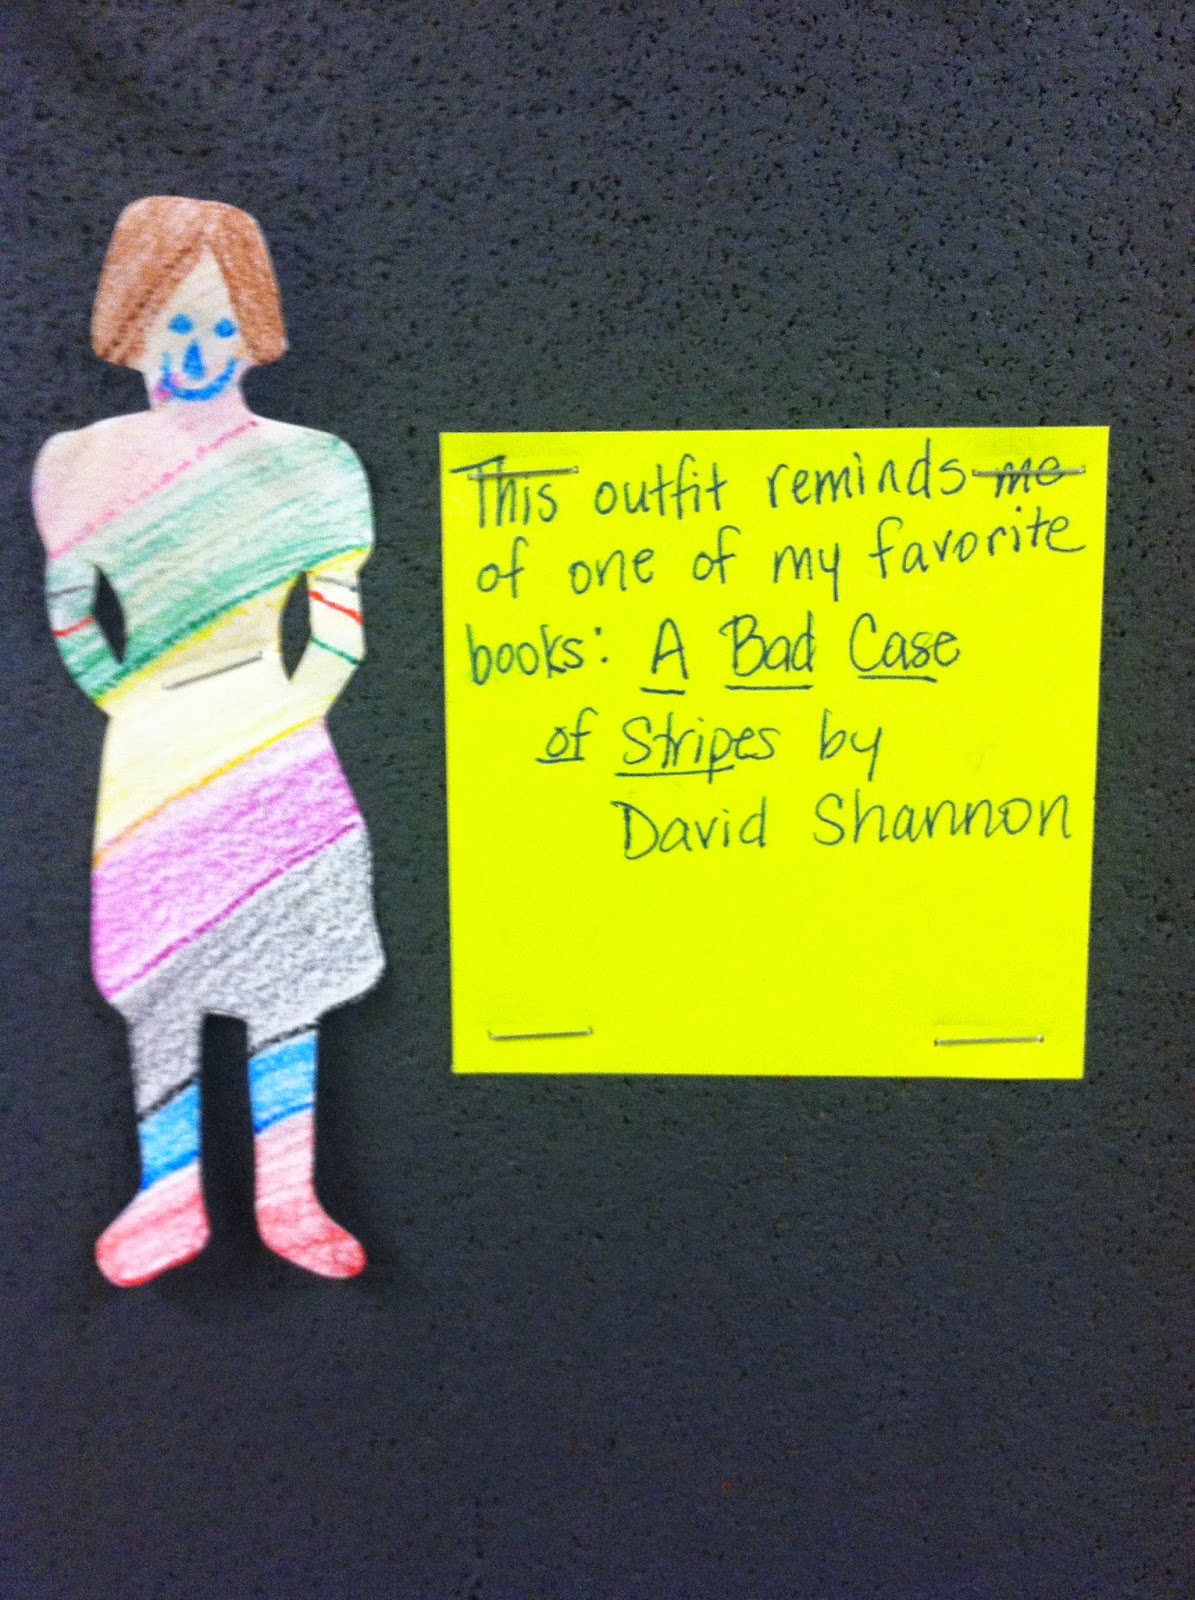 This outfit reminds me
of one of my favorite
books: A Bad Case
of Stripes by
David Shannon